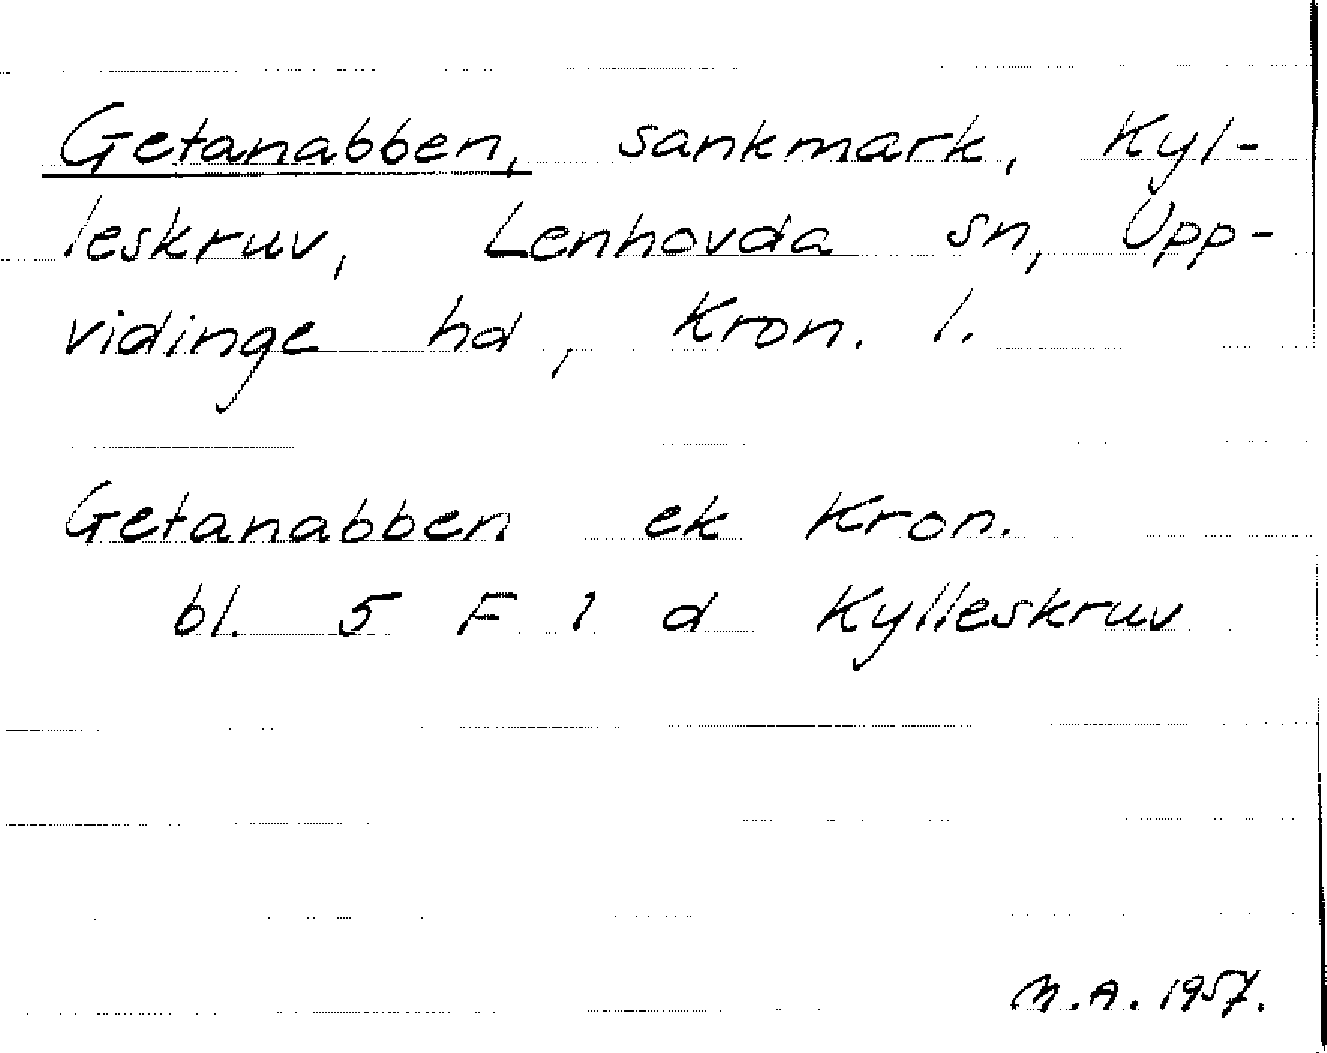 Getanabben, sankmark, Kyl-
leskruv, Lenhovda sn, Upp-
vidinge hd, Kron. l.
Getanabben ek Kron.
bl. 5 F 1 d Kylleskruv
M.A. 1957.